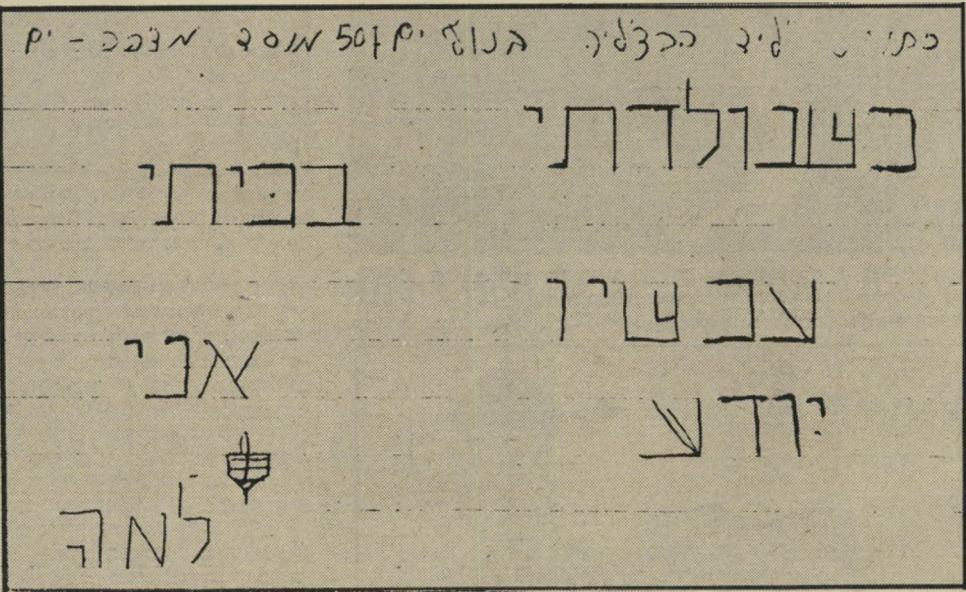 ליד הרצליה בנוף ים מוסד מצפה - ים
כשנולדתי
בכיתי
עכשיו
אני
יודע
למה